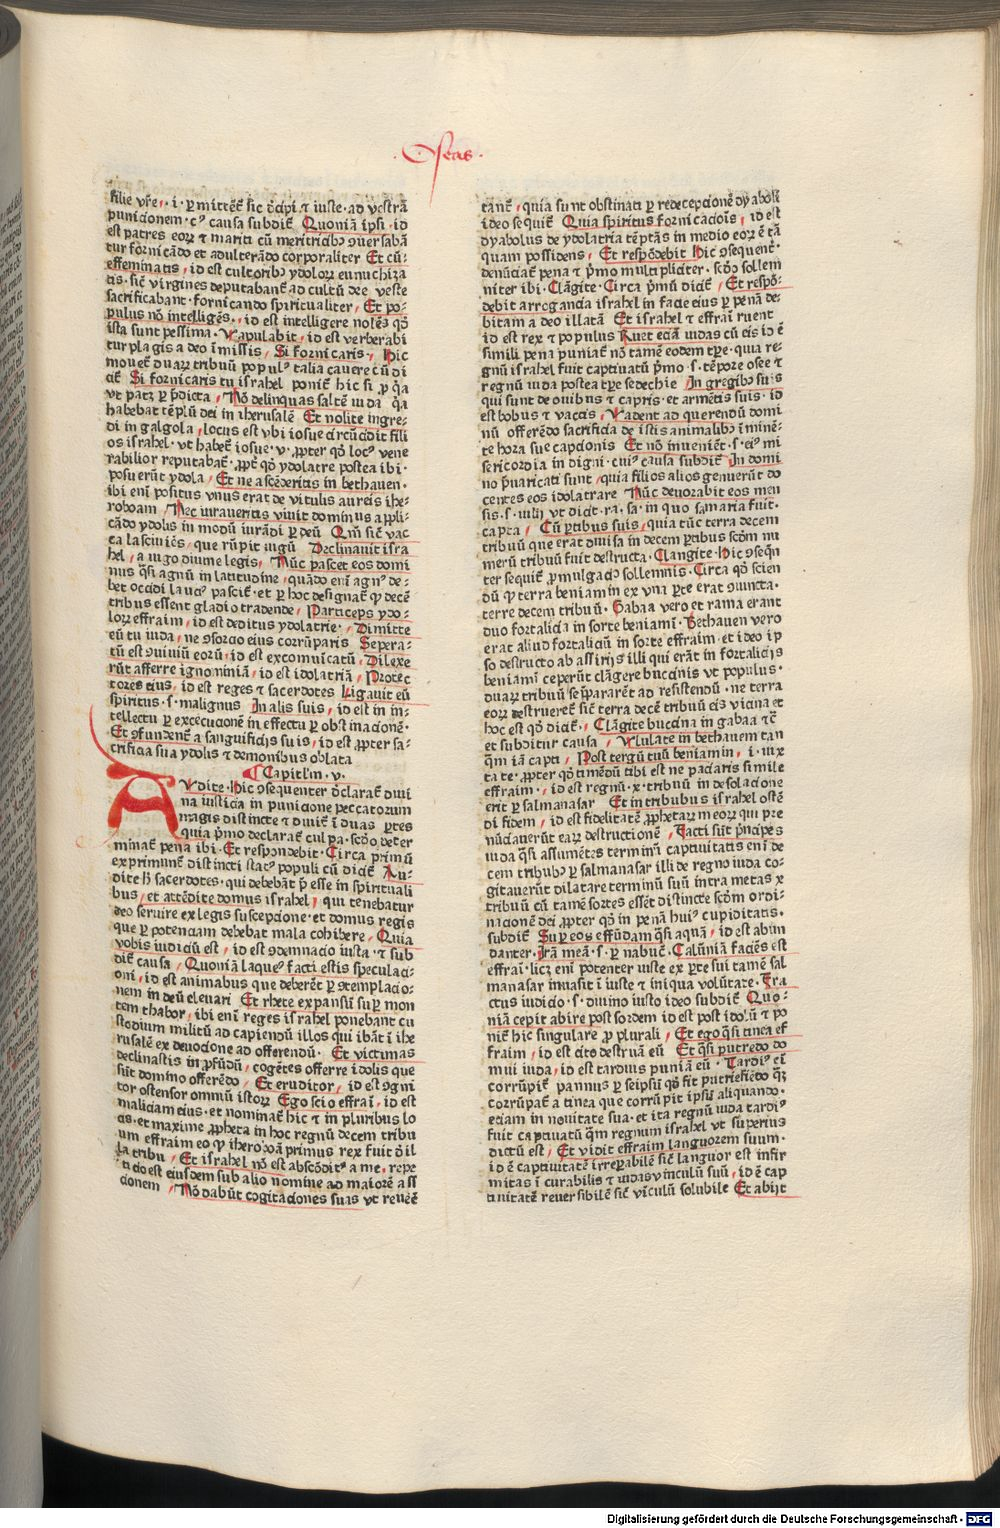 Oseas
filie vr̄e · i · ꝑmittet̄ sic decipi ⁊ iuste · ad vestrā
punicionem · cuiꝰ causa subdit̄ Quoniā ipsi · id
est patres eoꝝ ⁊ mariti cū meritricibꝫ ꝯuersabā
tur fornicādo et adulterādo corporaliter Et cū
effeminatis , id est cultoribꝫ ydoloꝝ eunuchiza
tis · sic̄ virgines deputabant̄ ad cultū dee veste
sacrificabant · fornicando spiritualiter , Et po-
pulus nō intelligēs · , id est intelligere nolēs qd̄
ista sunt pessima · Vapulabit , id est verberabi
tur plagis a deo īmissis , Si fornicaris , Hic
mouet̄ duaꝝ tribuū populꝰ talia cauere cū di
cit̄ Si fornicaris tu israhel ponit̄ hic si ꝓ q̄a
vt patꝫ ꝑ p̄dicta , Nō delinquas saltē iuda q̄a
habebat tēplū dei in iherusalē Et nolite ingre-
di in galgola , locus est vbi iosue circūcidit fili
os israhel · vt habet̄ iosue · v · ꝓpter qd̄ locꝰ vene
rabilior reputabat̄ · ꝓpt̄ qd̄ ydolatre postea ibi ·
posuerūt ydola , Et ne ascēderitis in bethauen ·
ibi enī positus vnus erat de vitulis aureis ihe-
roboam , Nec iuraueritis viuit dominus appli-
cādo ydolis in modū iurādi ꝑ deū Qm̄ sic̄ vac
ca lasciuiēs , que rūpit iugū Declinauit isra
hel , a iugo diuine legis , Nūc pascet eos domi
nus q̄si agnū in latitudine , quādo enī agnꝰ de-
bet occidi lauciꝰ pascit̄ · et ꝑ hoc designat̄ ꝙ decē
tribus essent gladio tradende , Particeps ydo-
loꝝ effraim , id est deditus ydolatrie · , Dimitte
eū tu iuda , ne ꝯsorcio eius corrūparis Sepera-
tū est ꝯuiuiū eorū , id est excomuicatū , Dilexe
rūt afferre ignominiā , id est idolatriā , Protec
tores eius , id est reges ⁊ sacerdotes Ligauit eū
spiritus · s · malignus In alis suis , id est in in-
tellectu ꝑ excecucionē in effectu ꝑ obstinacionē ·
Et ꝯfundent̄ a sanguificijs suis , id est ꝓpter sa-
crificia sua ydolis ⁊ demonibus oblata
Capitl'm · v ·
AVdite · Hic ꝯsequenter declarat̄ diui
na iusticia in punicione peccatorum
magis distincte ⁊ diuit̄ ī duas ꝑtes
quia p̄mo declarat̄ culpa · scd̄o deter
minat̄ pena ibi · Et respondebit · Circa primū
exprimunt̄ distincti statꝰ populi cū dicit̄ Au-
dite h̄ sacerdotes · qui debebāt p̄esse in spirituali
bus , et attēdite domus israhel , qui tenebatur
deo seruire ex legis suscepcione · et domus regis
que ꝑ potenciam debebat mala cohibere , Quia
vobis iudiciū est , id est ꝯdemnacio iusta · ⁊ sub
dit̄ causa , Quoniā laqueꝰ facti estis speculaci-
oni , id est animabus que deberēt ꝑ ꝯtemplacio-
nem in deū eleuari Et rhete expansū suꝑ mon
tem thabor , ibi enī reges israhel ponebant cu
stodium militū ad capiendū illos qui ibāt ī ihe
rusalē ex deuocione ad offerendū · Et victimas
declinastis in ꝓfūdū , cogētes offerre idolis que
sūt domino offerēdo , Et eruditor , id est ꝯgni
tor ostensor omniū istoꝝ Ego scio effraī , id est
maliciam eius · et nominat̄ hic ⁊ in pluribus lo
cis · et maxime ꝓpheta in hoc regnū decem tribu
um effraim eo ꝙ iheroboā primus rex fuit de il
la tribu , Et israhel nō est abscōditꝰ a me , repe
ticio est eiusdem sub alio nomine ad maiorē ass
cionem , Nō dabūt cogitaciones suas vt reuert̄
tant̄ , quia sunt obstinati ꝑ redecepcionē dyaboli
ideo sequit̄ Quia spiritus fornicacīois , id est
dyabolus de ydolatria tēptās in medio eoꝝ ē tā
quam possidens , Et respōdebit Hic ꝯsequent̄ ·
denūciat̄ pena ⁊ p̄mo multipliciter · scd̄o sollem
niter ibi · Clāgite · Circa p̄mū dicit̄ , Et respō-
debit arrogancia israhel in facie eius ꝑ penā de-
bitam a deo illatā Et israhel ⁊ effraī ruent
id est rex ⁊ populus Ruet eciā iudas cū eis id ē
simili pena puniat̄ nō tamē eodem tꝑe · quia re-
gnū israhel fuit captiuatū p̄mo · s · tēpore osee ⁊
regnū iuda postea tꝑe sedechie In gregibꝫ suis
qui sunt de ouibus ⁊ capris · et armētis suis · id
est bobus ⁊ vaccis , Vadent ad querendū domi
nū offerēdo sacrificia de istis animalibꝫ īminē-
te hora sue capcionis Et nō inuenient̄ · s · eiꝰ mi
sericordia indigni · cuiꝰ causa subdit̄ In domi
no p̄uaricati sunt , quia filios alios genuerūt do
centes eos idolatrare Nūc deuorabit eos men
sis · s · iulij vt dicit · ra · sa · in quo samaria fuit ·
capta , Cū ꝑtibus suis , quia tūc terra decem
tribuū que erat diuisa in decem ꝑtibus scd̄m nu
merū tribuū fuit destructa · Clangite · Hic ꝯseq̄n
ter sequit̄ ꝓmulgacio sollemnis · Circa qd̄ scien
dū ꝙ terra beniamin ex vna ꝑte erat ꝯiuncta ·
terre decem tribuū · Gabaa vero et rama erant
duo fortalicia in sorte beniamī · Bethauen vero
erat aliud fortaliciū in sorte effraim · et ideo ip
so destructo ab assirijs illi qui erāt in fortalicijs
beniamī ceperūt clāgere buccinis vt populus ·
duaꝝ tribuū se p̄pararet ad resistendū · ne terra
eoꝝ destrueret̄ sic̄ terra decē tribuū eis vicina et
hoc est qd̄ dicit̄ · Clāgite buccina in gabaa ⁊c̄
et subditur causa , Vlulate in bethauem tan
q̄m iā capti , Post tergū tuū beniamin , i · iux
ta te · ꝓpter qd̄ timēdū tibi est ne paciaris simile
effraim · , id est regnū · x · tribuū in desolacione
erit ꝑ salmanasar Et in tribubus israhel ostē
di fidem , id est fidelitatē ꝓphetaꝝ meoꝝ qui pre
nūciauerūt eaꝝ destructionē , Facti sūt p̄ncipes
iuda q̄si assumētes terminū captiuitatis enī de
cem tribubꝫ ꝑ salmanasar illi de regno iuda co-
gitauerūt dilatare terminū suū intra metas x
tribuū cū tamē sortes essēt distincte scd̄m ordi-
nacionē dei , ꝓpter qd̄ in penā huiꝰ cupiditatis ·
subdit̄ Suꝑ eos effūdam q̄si aquā , id est abun
danter · Irā meā · s · ꝑ nabuc̄ · Calūniā faciēs est
effraī · licꝫ enī potenter iuste ex ꝑte sui tamē sal
manasar inuasit ī iuste ⁊ iniqua volūtate · Fra
ctus iudicio · s · diuino iusto ideo subdit̄ Quo-
niā cepit abire post sordem id est post idolū ⁊ po
nit̄ hic singulare ꝓ plurali , Et ego q̄si tinea ef
fraim , id est cito destruā eū Et q̄si putredo do
mui iuda , id est tardius puniā eū · Tardiꝰ eī
corrūpit̄ pannus ꝑ seipsū qd̄ fit putrefiēdo q̄ꝫ
corrūpat̄ a tinea que corrūpit ipsū aliquando ·
eciam in nouitate sua · et ita regnū iuda tardiꝰ
fuit captiuatū q̄m regnum israhel vt superius
dictū est , Et vidit effraim languorem suum ·
id ē captiuitatē irreꝑabilē sic̄ languor est infir
mitas ī curabilis ⁊ iudas vinculū suū , id ē cap
tiuitatē reuersibilē sic̄ vīculū solubile Et abijt
Digitalisierung gefördert durch die Deutsche Forschungsgemeinschaft - DFG